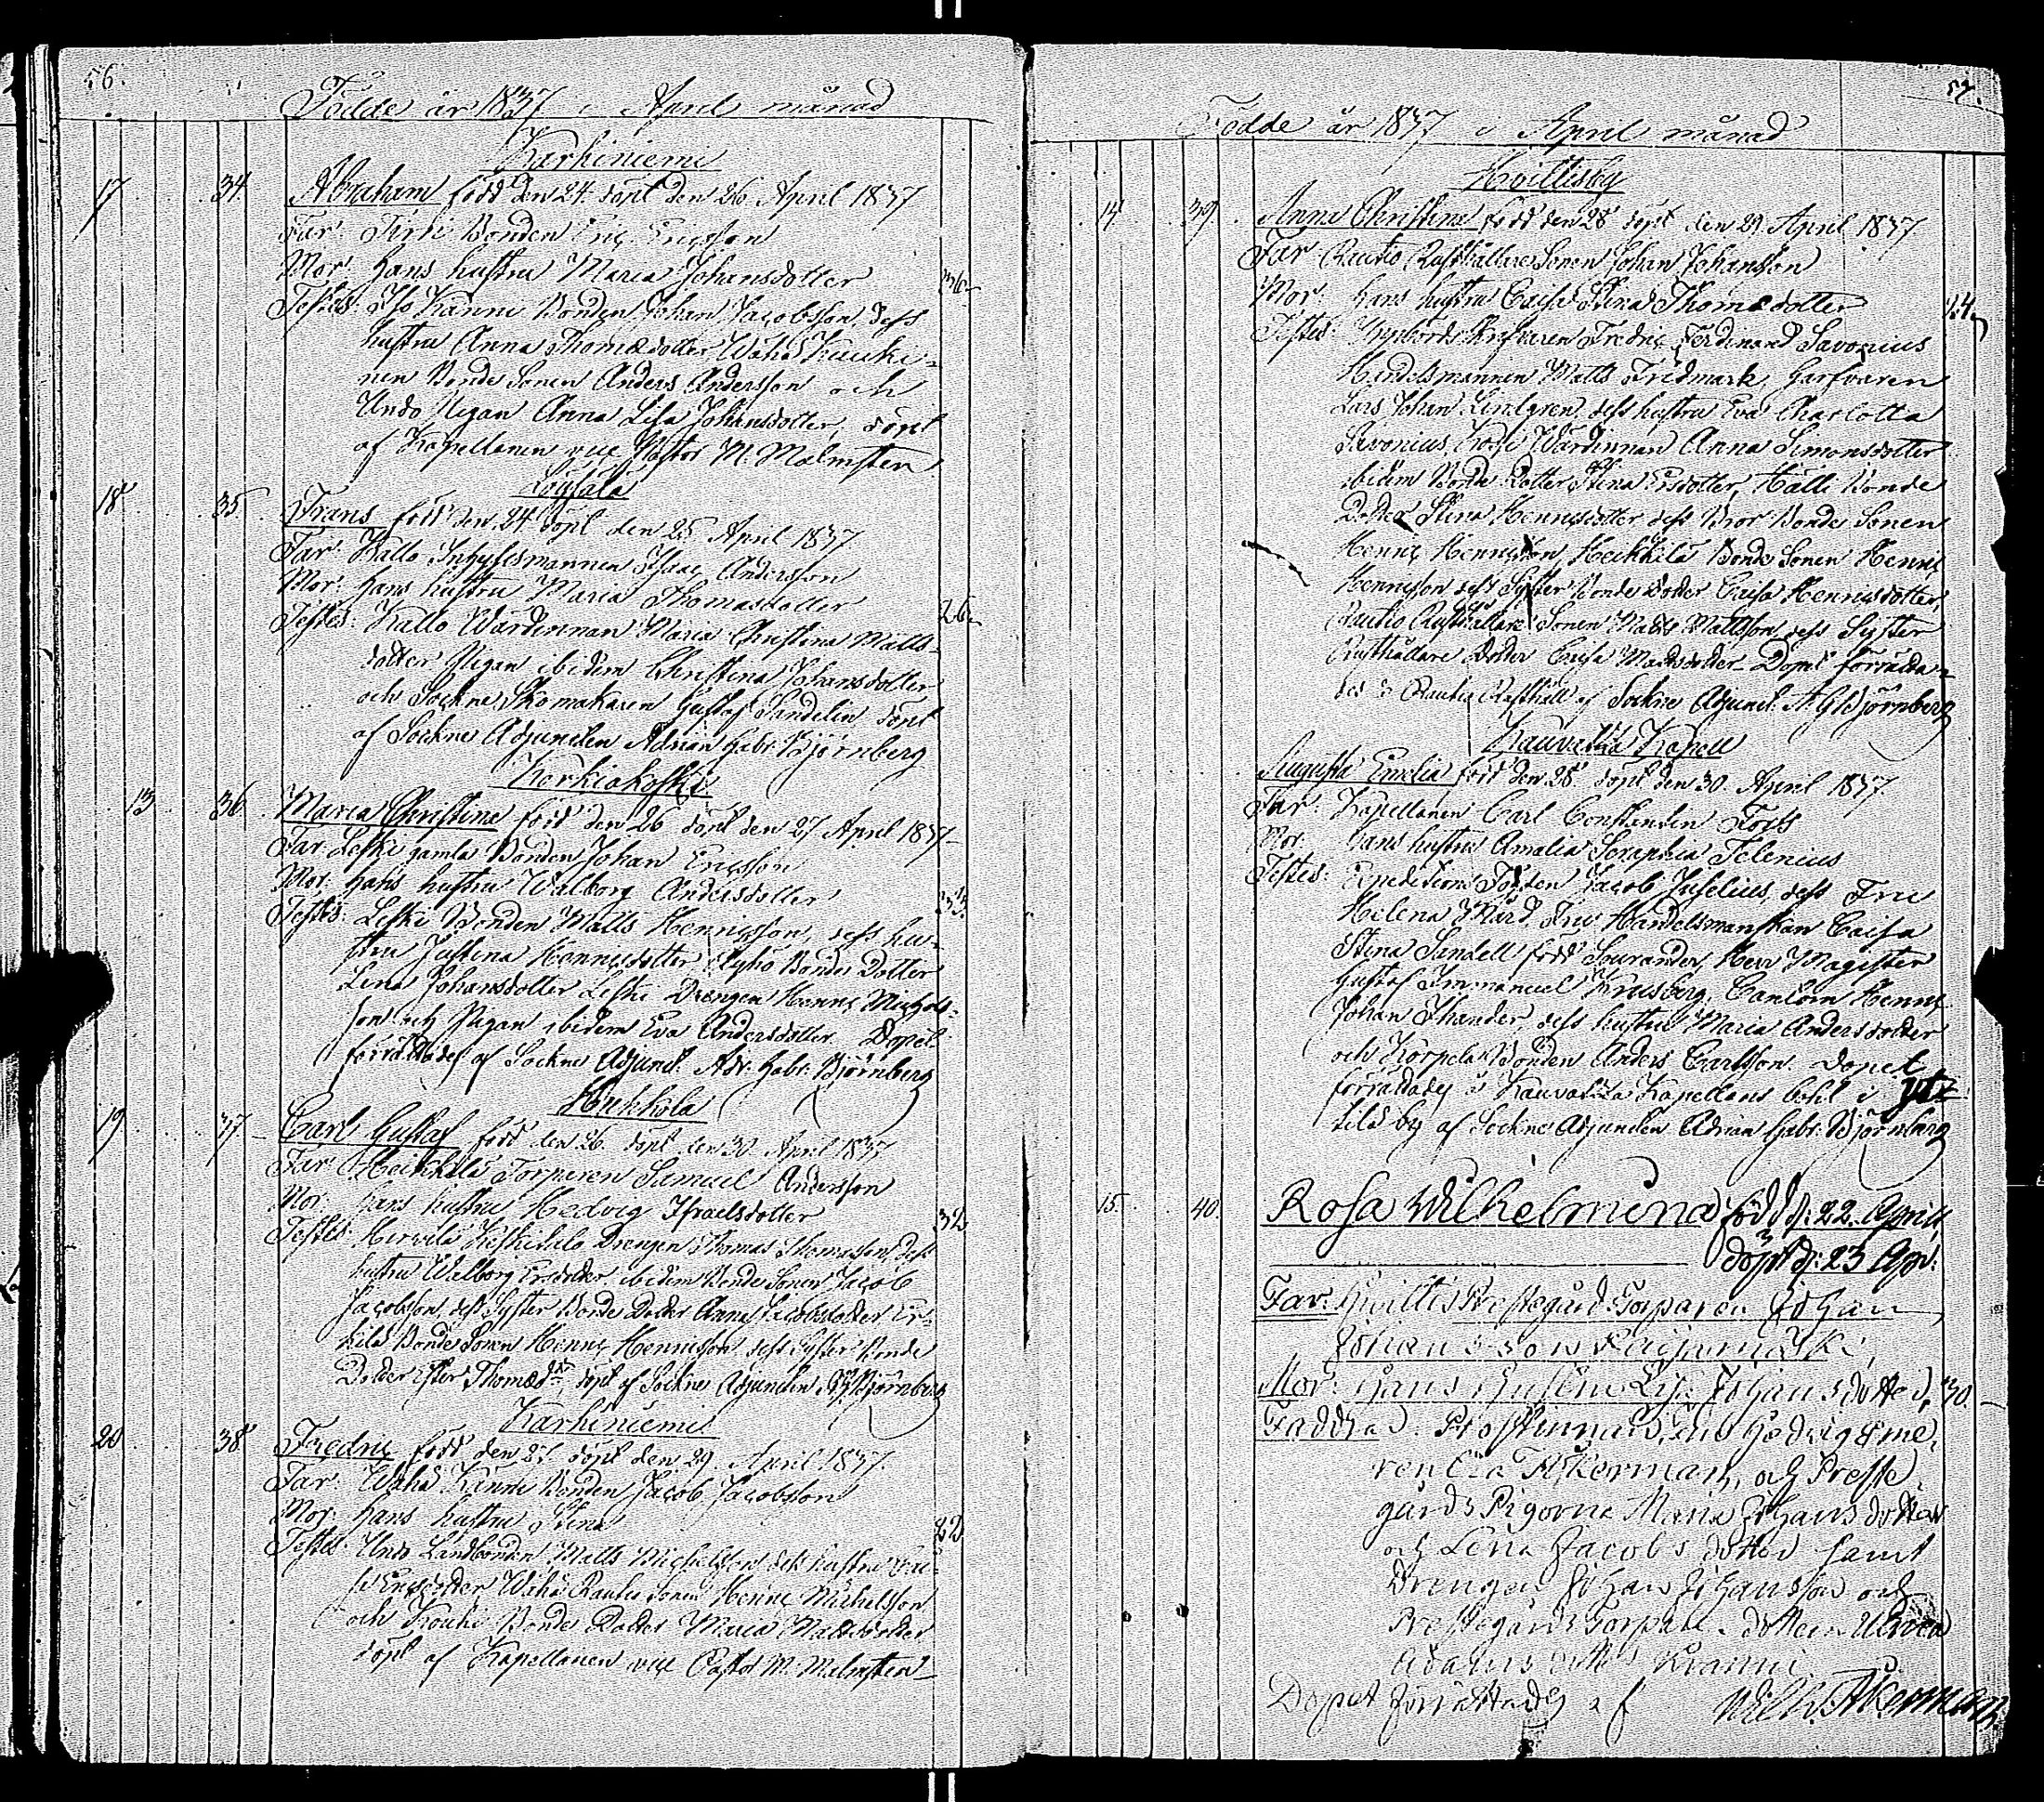 56.
Födde år 1837 i April månad
Karhiniemi
17 34. Abraham född den 24. döpt den 26 April 1837
Far: Bonden Eric Ericsson
Mor: hans hustru Maria Johansdotter 36
Testes: Iso Känni Bonden Johan Jacobsson, dess
hustru Anna Thomædotter Wähä Kauki-
nen Bonde Sonen Anders Andersson och
Undo Pigan Anna Lisa Johansdotter, döpt
af Kapellanen vice Pastor M. Malmsten
18 35. Frans född den 24 döpt den 25 April 1837
Far: Kallo Inhysesmannen Isaac Andersson
Mor: hans hustru Maria Thomasdotter 26
Testes: Kallo Wärdinnan Maria Christina Matts-
dotter Pigan ibidem Christina Johansdotter
och Sockne Skomakaren Gustaf Sandelin döpt
af Sockne Adjuncten Adrian Gabr. Björnberg
Korkiakoski
13 36. Maria Christina född den 26 döpt den 27 April 1837
Far: Leski gamla Bonden Johan Ericsson
Mor: hans hustru Walborg Andersdotter
Testes: Leski Bonden Matts Henricsson, dess hu-
stru Justina Henricsdotter, Bonde Dotter
Lena Johansdotter Leski Drengen Henric Michels-
son och Pigan ibidem Eva Andersdotter. Dopet
förrättades af Sockne Adjunct. Adr. Gabr. Björnberg
Hukkola
19 37 Carl Gustaf född den 26. döpt den 30 April 1837
Far: Heikkilä Torparen Samuel Andersson
Mor: hans hustru Hedvig Israelsdotter 32
Testes: Keskitalo Drengen Thomas Thomasson, dess
hustru Walborg Ersdotter, ibidem Bonde Sonen Jacob
Jacobsson, dess Syster Bonde Dotter Anna Jacobsdotter Er-
kilä Bonde Sonen Henric Henricsson dess Syster Bonde
Dotter Thomæd:r, döpt af Sockne Adjuncten A G Björnberg
Karhiniemi
20 38 Fredric född den 27. döpt den 29. April 1837.
Far: Wähä Känni Bonden Jacob Jacobsson
Mor: hans hustru Stina
Testes: Undo Landbonden Matts Michelsson dess hustru Cai-
sa Ericsdotter Wähä Rautio Sonen Henric Michelsson
och Kouki Bonde Dotter Maria Mattsdotter
döpt af Kapellanen vice Pastor M. Malmsten
57.
Födde år 1837 i April månad
Hvittisby
14. 39. Anna Christina född den 28 döpt den 29. April 1837
Far: Rautio Rusthållare Sonen Johan Johansson
Mor: hans hustru Caisa Stina Thomædotter 24
Testes: Fredric Ferdinand Savonius
Handelsmannen Matts Fridmark, Garfvaren
Lars Johan Lindgren, dess hustru Eva Charlotta
Savonius, Wärdinnan Anna Simonsdotter
ibidem Bonde Dotter Stina Ersdotter, Hälli Bonde
Dotter Stina Henricsdotter dess Bror Bonde Sonen
Henric Henricsson, Heikkilä Bonde Sonen Henric
Henricsson dess Syster Bonde Dotter Caisa Henricsdotter,
Rautio Rusthållare Sonen Matts Mattsson, dess Syster
Rusthållare Dotter Caisa Mattsdotter. Dopet förrätta-
des å Rautio Rusthåll af Sockne Adjunct. A. G. Björnberg
Kauvatsa Kapell
Augusta Emelia född den 28. döpt den 30. April 1837
Far: Kapellanen Carl Constantin Fors
Mor: hans hustru Amalia Seraphia Telenius
Testes: Expeditions Fogden Jacob Juselius, dess Fru
Helena Fru Handelsmanskan Caisa
Stina Sandell född Sourander, Herr Magister
Gustaf Immanuel Cantorn Henric
Johan Thander, dess hustru Maria Andersdotter
och Korpela Bonden Anders Carlsson. Dopet
förrättades å Kauvatsa Kapellans bohl i Yt-
tilä by af Sockne Adjuncten Adrian Gabr. Björnberg
15. 40. Rosa Wilhelmina född d: 22. April,
döpt d: 23 Apr:
Far: Hvittis Prestegårds Torparen Johan
Johansson
Mor: Hans Hustru Lisa Johansdotter, 30.
Faddrar. Prostinnan, Fru Hedvig Eme-
rentia Åkerman, och Preste
gårds Pigorne Maria Johansdotter
och Lena Jacobsdotter samt
Drengen Johan Johansson och
Prestegårds Torpare dottern Ulrica
Adamsdotter
Dopet förrättades af Wilh. Åkerman